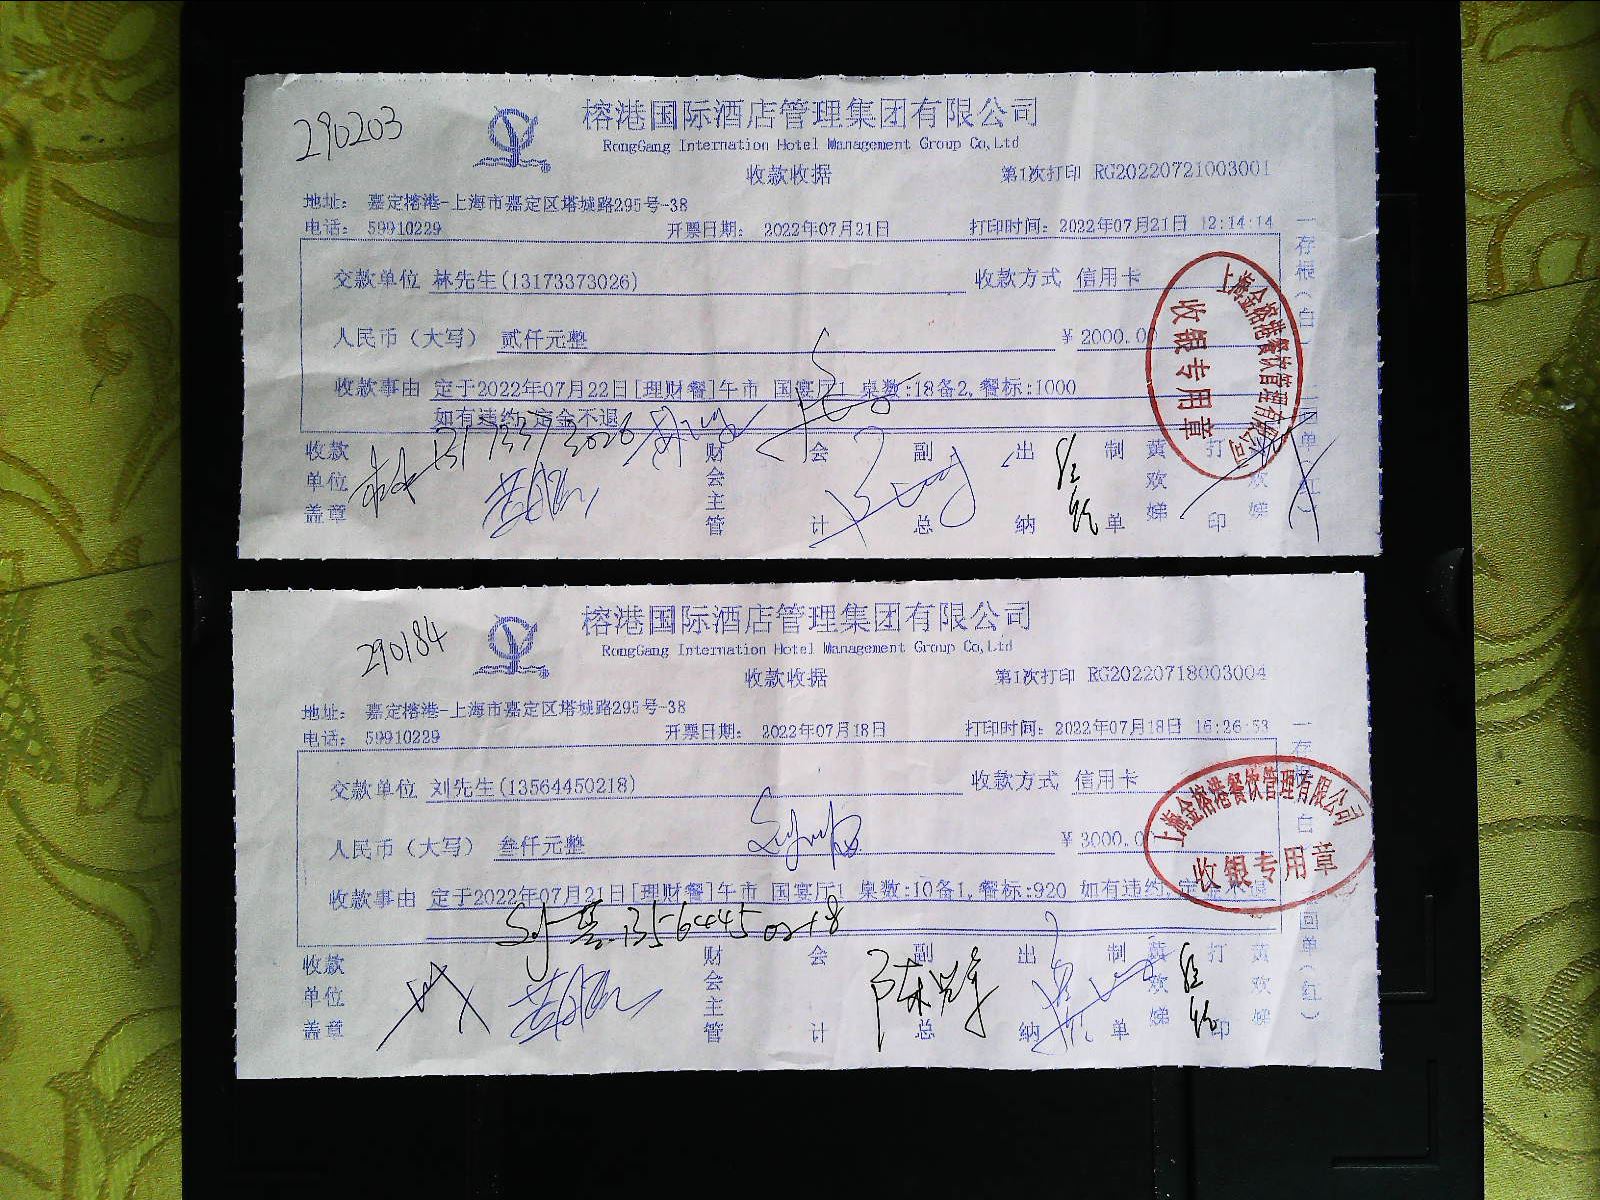 290203
榕港国际酒店管理集团有限公司
RongGang Internation Hotel Management Group Co,Ltd
收款收据
第1次打印 RG20220721003001
地址： 嘉定榕港-上海市嘉定区塔城路295号-38
电话： 59910229 开票日期： 2022年07月21日 打印时间：2022年07月21日 12:14:14
交款单位 林先生(13173373026) 收款方式 信用卡
人民币（大写） 贰仟元整 ¥ 2000.00
收款事由 定于2022年07月22日[理财餐]午市 国宴厅1 桌数:18备2,餐标:1000
如有违约,定金不退
林 13173373026
收款单位盖章 财会主管 会计 副总 出纳 制单 黄欢娣 打印 黄欢娣
一存根（白） 二回单（红）
上海金榕港餐饮管理有限公司
收银专用章
290184
榕港国际酒店管理集团有限公司
RongGang Internation Hotel Management Group Co,Ltd
收款收据
第1次打印 RG20220718003004
地址： 嘉定榕港-上海市嘉定区塔城路295号-38
电话： 59910229 开票日期： 2022年07月18日 打印时间：2022年07月18日 16:26:53
交款单位 刘先生(13564450218) 收款方式 信用卡
人民币（大写） 叁仟元整 ¥ 3000.0
收款事由 定于2022年07月21日[理财餐]午市 国宴厅1 桌数:10备1,餐标:920 如有违约,定金不退
13564450218
收款单位盖章 财会主管 会计 副总 出纳 制单 黄欢娣 打印 黄欢娣
一存根（白） 二回单（红）
上海金榕港餐饮管理有限公司
收银专用章